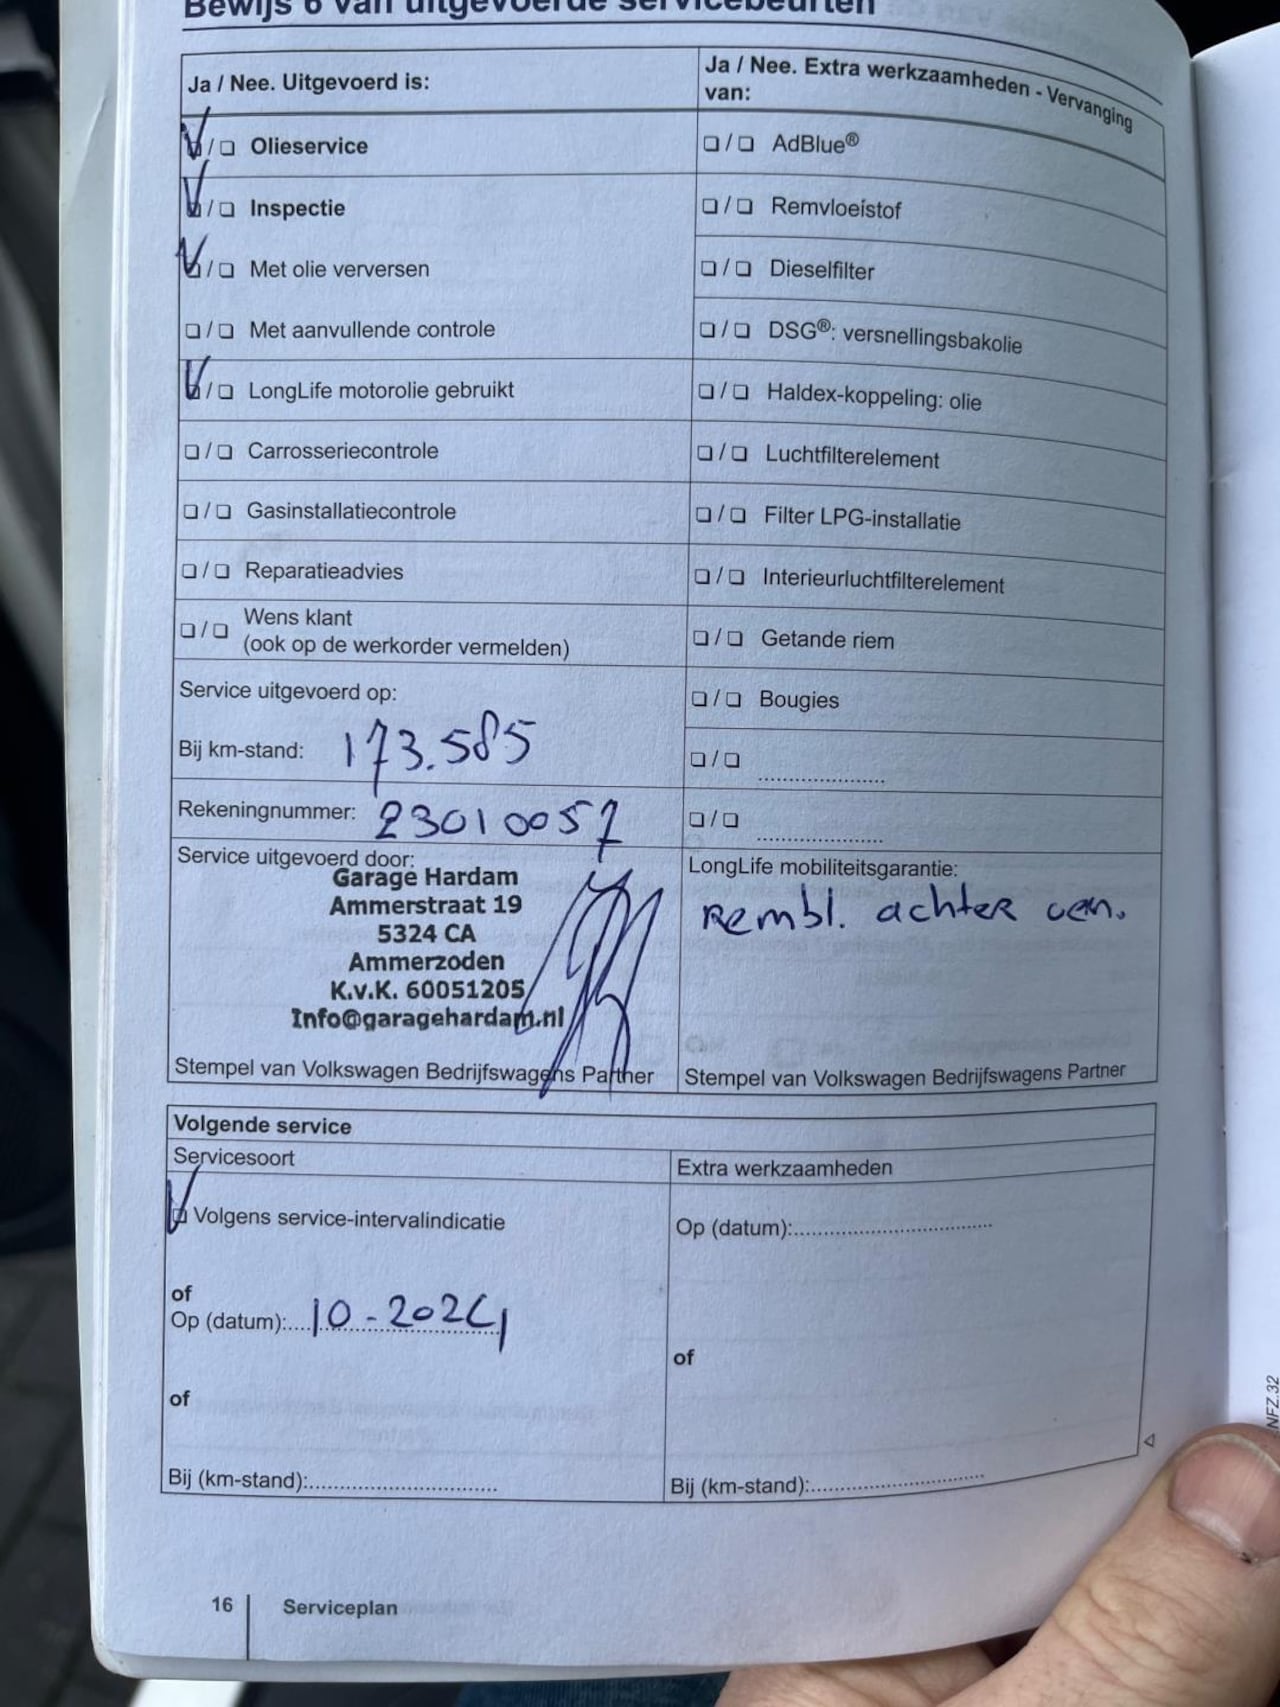 Bewijs 6 van uitgevoerde servicebeurten
Ja / Nee. Uitgevoerd is:
Ja / Nee. Extra werkzaamheden - Vervanging
van:
/ Olieservice
/ AdBlue®
/ Inspectie
/ Remvloeistof
/ Met olie verversen
/ Dieselfilter
/ Met aanvullende controle
/ DSG®: versnellingsbakolie
/ LongLife motorolie gebruikt
/ Haldex-koppeling: olie
/ Carrosseriecontrole
/ Luchtfilterelement
/ Gasinstallatiecontrole
/ Filter LPG-installatie
/ Reparatieadvies
/ Interieurluchtfilterelement
/ Wens klant
(ook op de werkorder vermelden)
/ Getande riem
Service uitgevoerd op:
/ Bougies
Bij km-stand: 173.585
/ ....................
Rekeningnummer: 23010057
/ ....................
Service uitgevoerd door:
Garage Hardam
Ammerstraat 19
5324 CA
Ammerzoden
K.v.K. 60051205
Info@garagehardam.nl
Stempel van Volkswagen Bedrijfswagens Partner
LongLife mobiliteitsgarantie:
Rembl. achter ven.
Stempel van Volkswagen Bedrijfswagens Partner
Volgende service
Servicesoort
Extra werkzaamheden
Volgens service-intervalindicatie
Op (datum):....................
of
Op (datum):....10-2024
of
of
Bij (km-stand):....................
Bij (km-stand):....................
16 Serviceplan
NFZ.32